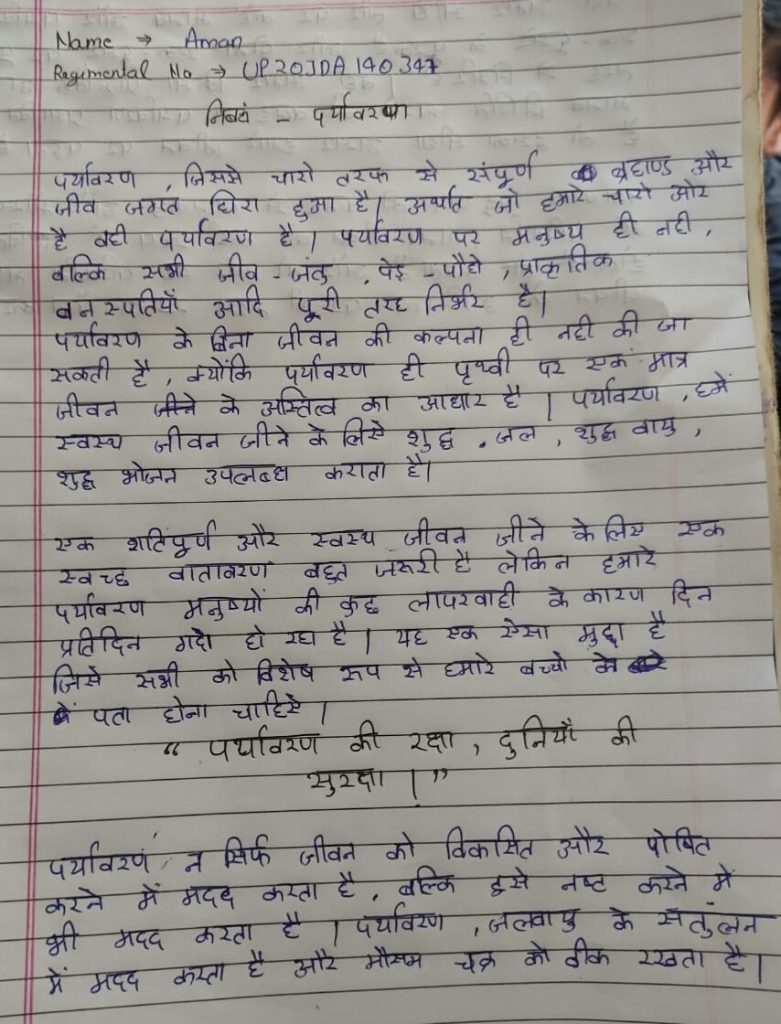 Name → Aman
Regimental No → UP20JDA140347
निबधं - पर्यावरण।
पर्यावरण , जिससे चारो तरफ से संपूर्ण ब्रहाण्ड और
जीव जगत घिरा हुआ है। अर्थात जो हमारे चारो और
है वही पर्यावरण है। पर्यावरण पर मनुष्य ही नही ,
बल्कि सभी जीव - जंतु , पेड़ - पौधे , प्राकृतिक
वनस्पतियाँ आदि पूरी तरह निर्भर है।
पर्यावरण के बिना जीवन की कल्पना ही नही की जा
सकती है , क्योंकि पर्यावरण ही पृथ्वी पर एक मात्र
जीवन जीने के अस्तित्व का आधार है। पर्यावरण , हमें
स्वस्थ जीवन जीने के लिये शुद्ध , जल , शुद्ध वायु ,
शुद्ध भोजन उपलब्ध कराता है।
एक शातिंपूर्ण और स्वस्थ जीवन जीने के लिए एक
स्वच्छ वातावरण बहुत जरूरी है लेकिन हमारे
पर्यावरण मनुष्यों की कुछ लापरवाही के कारण दिन
प्रतिदिन गदां हो रहा है। यह एक ऐसा मुद्दा है
जिसे सभी को विशेष रूप से हमारे बच्चो के
पता होना चाहिये।
“ पर्यावरण की रक्षा , दुनियाँ की
सुरक्षा। ”
पर्यावरण न सिर्फ जीवन को विकासित और पोषित
करने में मदद करता है , बल्कि इसे नष्ट करने में
भी मदद करता है । पर्यावरण , जलवायु के सतुंलन
में मदद करता है और मौसम चक्र को ठीक रखता है।